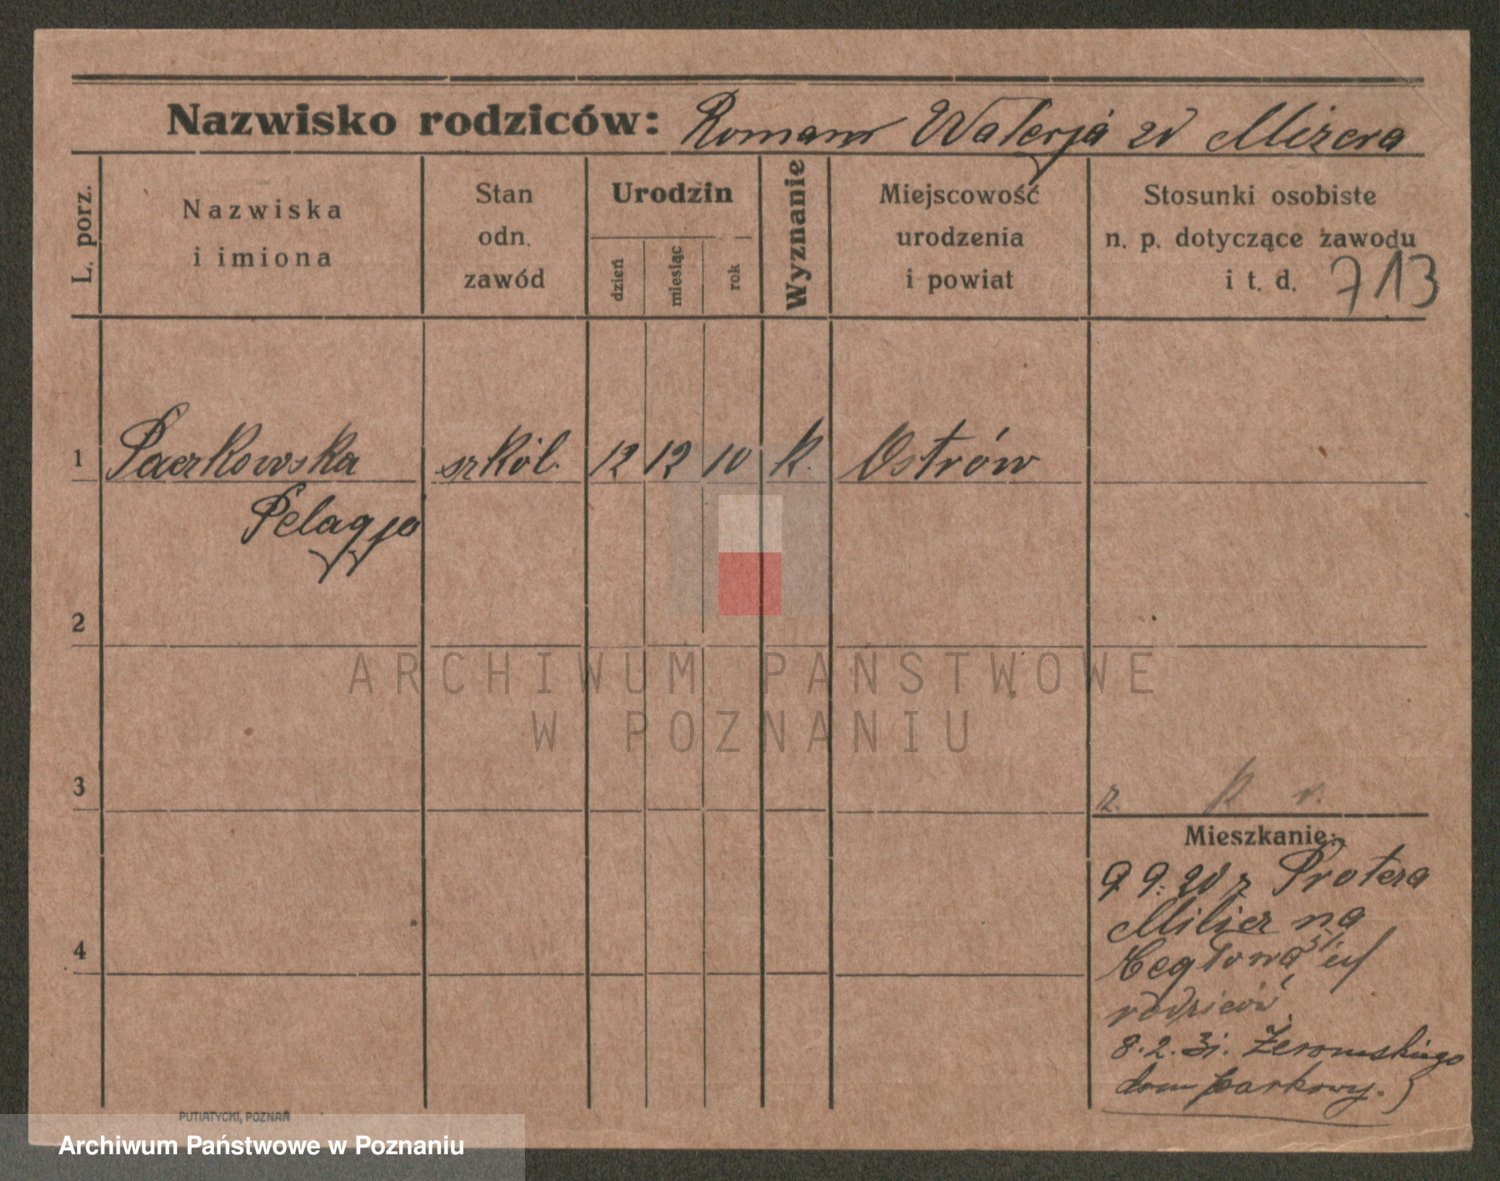 Nazwisko rodziców: Roman Walerja zd Miżera
L. porz.
Nazwiska
i imiona
Stan
odn.
zawód
Urodzin
dzień
miesiąc
rok
Wyznanie
Miejscowość
urodzenia
i powiat
Stosunki osobiste
n. p. dotyczące zawodu
i t. d. 713
1 Paczkowska szkol. 12 12 10 k. Ostrów
Pelagja
2
ARCHIWUM PAŃSTWOWE
W POZNANIU
3
z. k v.
Mieszkanie:
9 9. 20 z Protera
Milicz na
Cegłowa 31.
rodziców
8. 2. 31. Żeromskiego
dom parkowy.
4
PUTIATYCKI, POZNAŃ
Archiwum Państwowe w Poznaniu